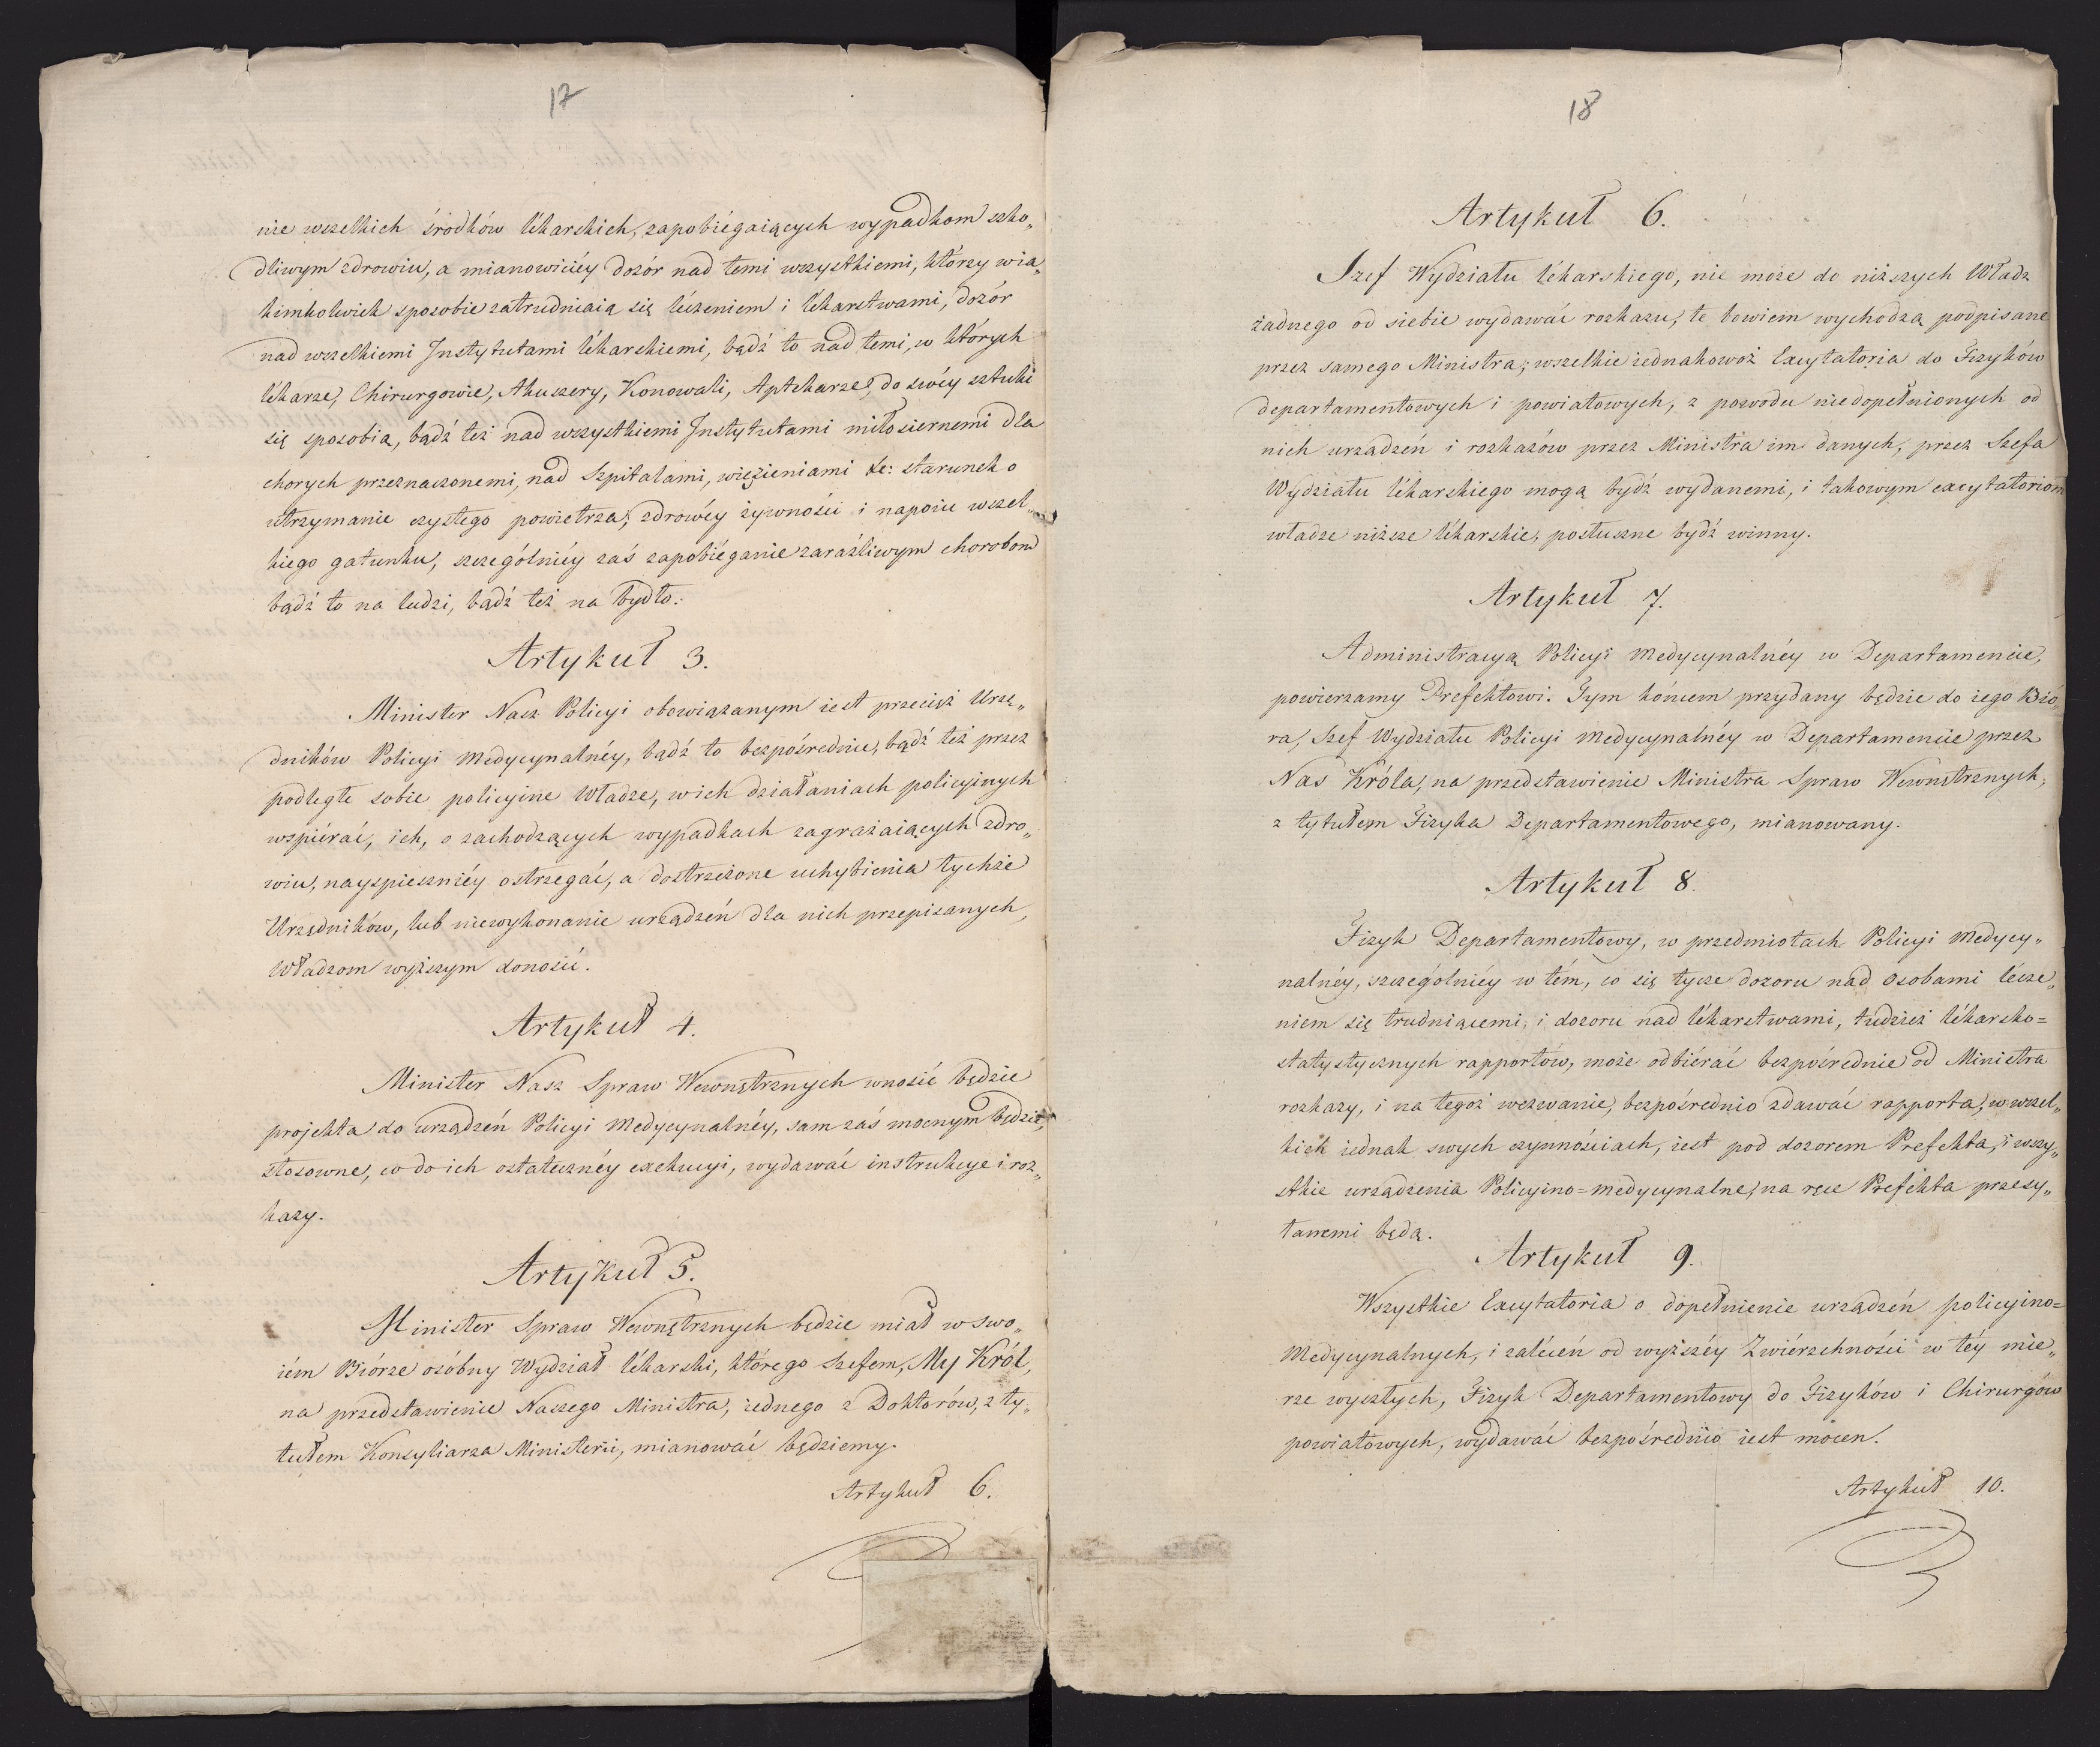 17
nie wszelkich śrǒdków lékarskich, zapobiégaiących wypadkom szko„
dliwym zdrowiu, a mianowiciéy dozór nad temi wszystkiemi, którzy wia„
kimkolwiek sposobie zatrudniaią się léczeniem i lékarstwami, dozór
nad wszelkiemi Instytutami lékarskiemi, bądź to nad temi, w których
lékarze, Chirurgowie, Akuszery, Konowali, Aptekarze, do swéy sztuki
się sposobią, bądź też nad wszystkiemi Instytutami miłosiernemi dla
chorych przeznaczonemi, nad Szpitalami, więzieniami &c: starunek o
utrzymanie czystego powietrza, zdrowéy żywności i napoiu wszel„
kiego gatunku, szczególniéy zaś zapobiéganie zaraźliwym chorobom
bądź to na ludzi, bądź też na bydło.
Artykuł 3.
Minister Nasz Policyi obowiązanym iest przecież Urzę„
dników Policyi Medycynalnéy, bądź to bezpośrednie, bądź też przez
podległe sobie policyine Władze, w ich działaniach policyinych
wspiérać, ich, o zachodzących wypadkach zagrażaiących zdro„
wiu, nayspieszniéy ostrzegać, a dostrzeżone uchybienia tychże
Urzędników, lub niewykonanie urządzeń dla nich przepisanych,
Władzom wyższym donosić.
Artykuł 4.
Minister Nasz Spraw Wewnętrznych wnosić będzie
projekta do urządzeń Policyi Medycynalnéy, sam zaś mocnym będzie,
stosowne, co do ich ostatecznéy exekucyi, wydawać instrukcye i roz„
kazy.
Artykuł 5.
Minister Spraw Wewnętrznych będzie miał w swo„
iém Biórze osóbny Wydział lékarski, którego Szefem, My Król,
na przedstawienie Naszego Ministra, iednego z Doktorów, z ty„
tułem Konsyliarza Ministerii, mianować będziemy.
Artykuł 6.
18
Artykuł 6.
Szef Wydziału lékarskiego, nie może do niższych Władz
żadnego od siebie wydawać rozkazu, te bowiem wychodzą podpisane
przez samego Ministra; wszelkie iednakowoż Excytatoria do Fizyków
departamentowych i powiatowych, z powodu niedopełnionych od
nich urządzeń i rozkazów przez Ministra im danych, przez Szefa
Wydziału lékarskiego mogą bydź wydanemi, i takowym excytatoriom
władze niższe lékarskie, posłuszne bydź winny.
Artykuł 7.
Administracyą Policyi Medycynalnéy w Departamencie,
powierzamy Prefektowi. Tym końcem przydany będzie do iego Bió„
ra, Szef Wydziału Policyi Medycynalnéy w Departamencie przez
Nas Króla, na przedstawienie Ministra Spraw Wewnętrznych,
z tytułem Fizyka Departamentowego, mianowany.
Artykuł 8.
Fizyk Departamentowy, w przedmiotach Policyi Medycy„
nalnéy, szczególniéy w tém, co się tycze dozoru nad Osobami lécze„
niem się trudniącemi, i dozoru nad lékarstwami, tudzież lékarsko=
statystycznych rapportów, może odbiérać bezpośrednie od Ministra
rozkazy, i na tegoż wezwanie, bezpośrednio zdawać rapporta, w wszel„
kich iednak swych czynnościach, iest pod dozorem Prefekta, i wszy„
stkie urządzenia Policyino=medycynalne, na ręce Prefekta przesy„
łanemi będą.
Artykuł 9.
Wszystkie Excytatoria o dopełnienie urządzeń policyino=
Medycynalnych, i zaléceń od wyższéy Zwiérzchności w téy mie„
rze wyszłych, Fizyk Departamentowy do Fizyków i Chirurgów
powiatowych, wydawać bezpośrednio iest mocen.
Artykuł 10.